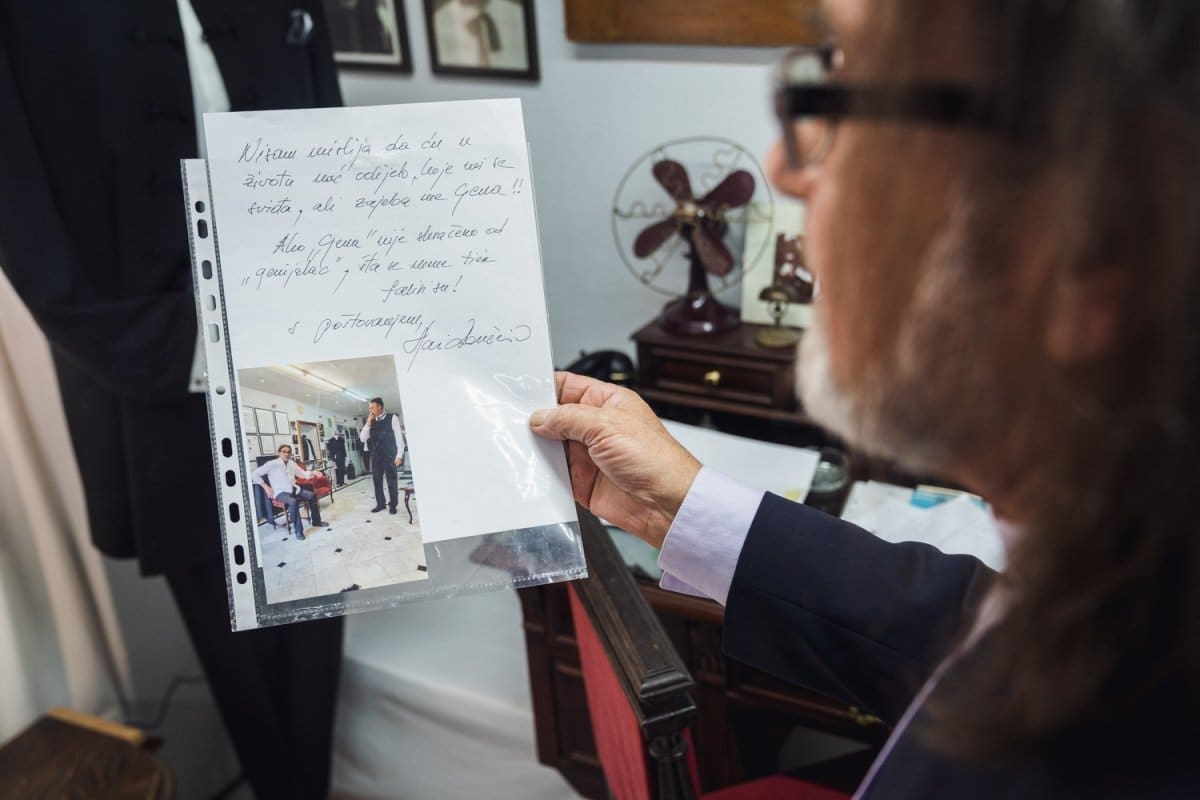 Nisam mislija da ću u
životu nać' odijelo, koje mi se
sviđa, ali zajeba me Gena!!
Ako „Gena" nije skraćeno od
„genijalac", šta se mene tiče
su!
s poštovanjem,
Hari Rončević